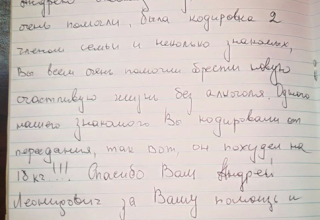 очень помогли, была кодировка 2
членом семьи и несколко знакомых,
Вы всем очень помогли обрести новую
счастливую жизнь без алкоголя. Одного
нашего знакомого Вы кодировали от
переедания, так вот, он похудел на
18 кг!!! Спасибо Вам Андрей
Леонидович за Вашу помощь и